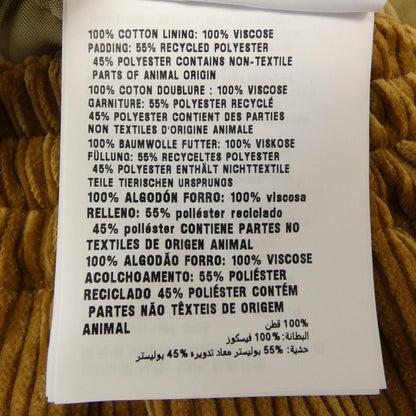 100% COTTON LINING: 100% VISCOSE
PADDING: 55% RECYCLED POLYESTER
45% POLYESTER CONTAINS NON-TEXTILE
PARTS OF ANIMAL ORIGIN
100% COTON DOUBLURE : 100% VISCOSE
GARNITURE: 55% POLYESTER RECYCLÉ
45% POLYESTER CONTIENT DES PARTIES
NON TEXTILES D'ORIGINE ANIMALE
100% BAUMWOLLE FUTTER: 100% VISKOSE
FÜLLUNG: 55% RECYCELTES POLYESTER
45% POLYESTER ENTHÄLT NICHTTEXTILE
TEILE TIERISCHEN URSPRUNGS
100% ALGODÓN FORRO: 100% viscosa
RELLENO: 55% poliéster reciclado
45% poliéster CONTIENE PARTES NO
TEXTILES DE ORIGEN ANIMAL
100% ALGODÃO FORRO: 100% VISCOSE
ACOLCHOAMENTO: 55% POLIÉSTER
RECICLADO 45% POLIÉSTER CONTÉM
PARTES NÃO TÊXTEIS DE ORIGEM
ANIMAL
100% قطن
البطانة: 100% فيسكوز
حشية: 55% بوليستر معاد تدويره 45% بوليستر